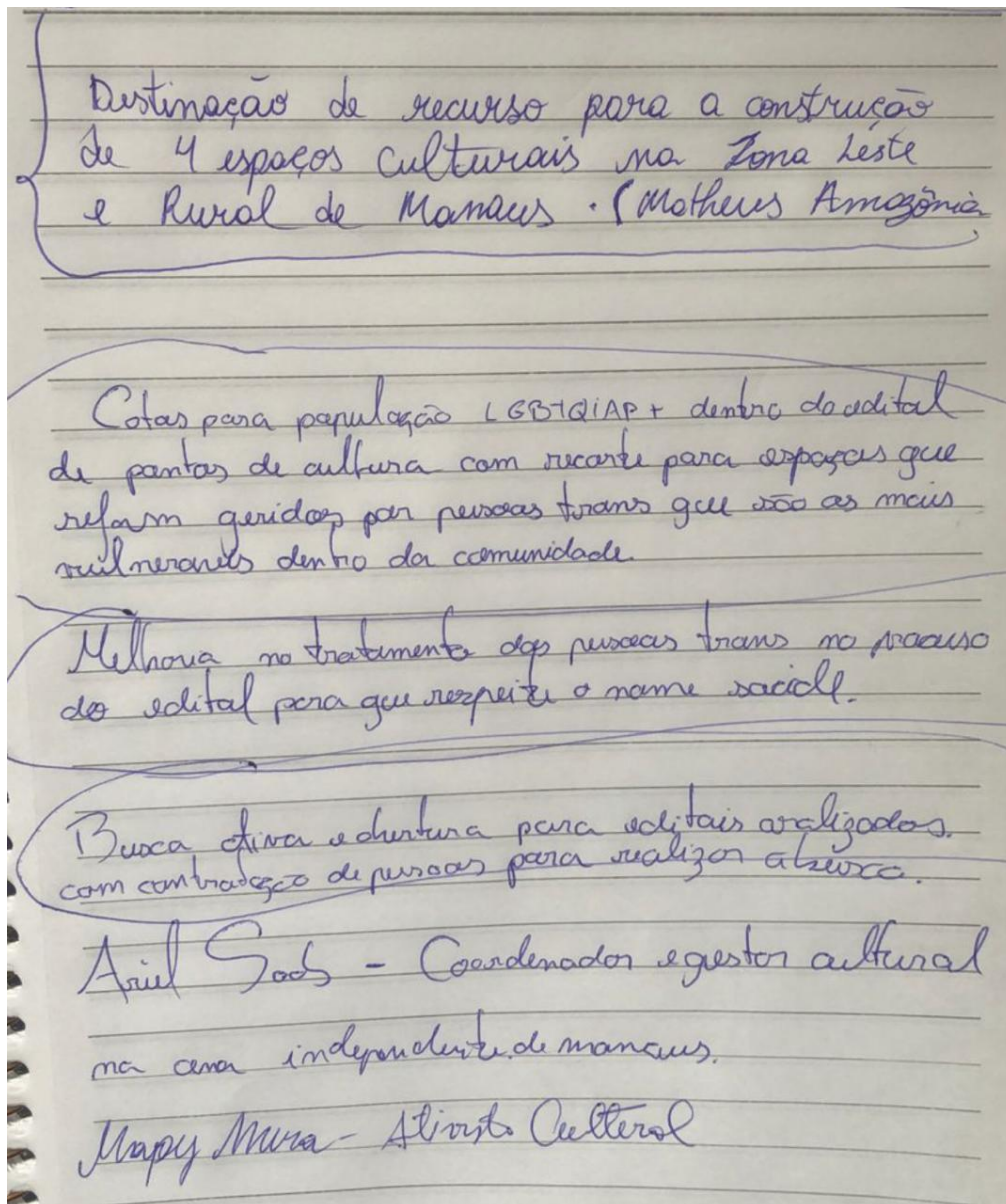 Destinação de recurso para a construção
de 4 espaços culturais na Zona Leste
e Rural de Manaus. (Matheus Amazônia
Cotas para população LGBTQIAP+ dentro do edital
de pontos de cultura com recorte para espaços que
geridos por pessoas trans que são as mais
vulneraveis dentro da comunidade.
Melhoria no tratamento das pessoas trans no processo
do edital para que respeite o nome social.
Busca ativa e abertura para editais oralizados.
com contratação de pessoas para realizar a busca.
Ariel - Coordenador e gestor cultural
na cena independente de manaus.
Mapy Mura - Ativista Cultural